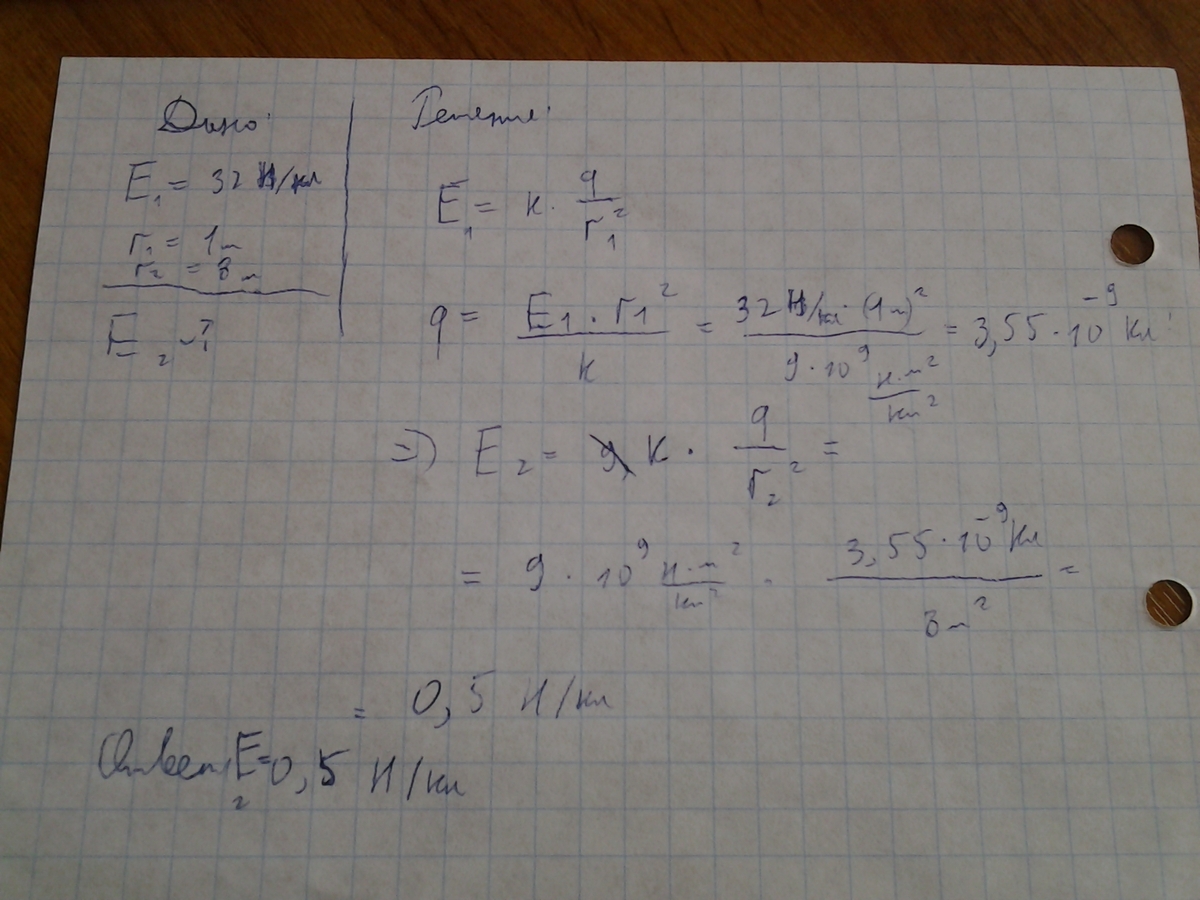 Дано:
E₁ = 32 Н/кл
r₁ = 1м
r₂ = 8м
E₂ - ?
Решение:
E₁ = к · q/r₁²
q = E₁ · r₁²/к = 32 Н/кл · (1м)²/9 · 10⁹ н·м²/кл² = 3,55 · 10⁻⁹ Кл
=> E₂ = к · q/r₂² =
= 9 · 10⁹ н·м²/кл² · 3,55 · 10⁻⁹ Кл/8м² =
= 0,5 Н/кл
Ответ: E₂ = 0,5 Н/кл